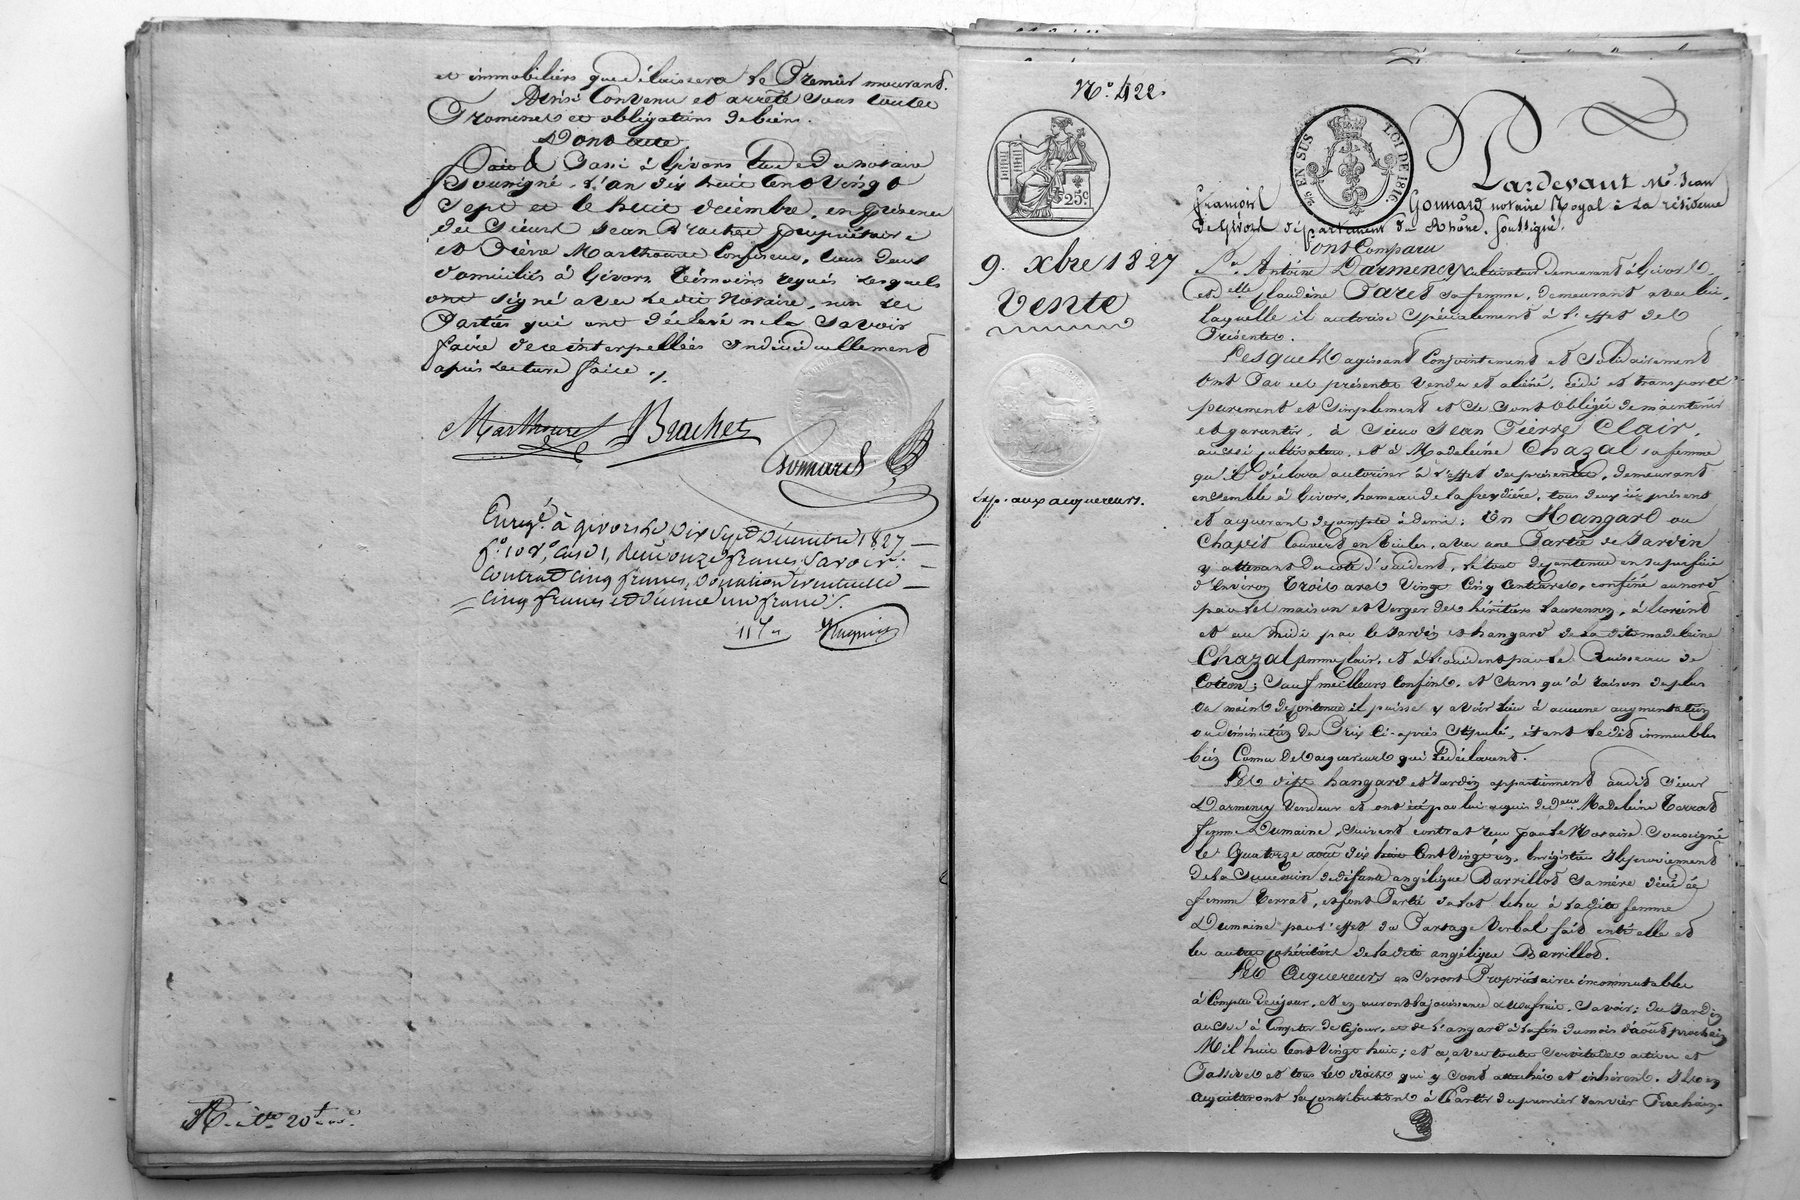 et immobiliers que délaissera le Premier mourant.
Ainsi Convenu et arrêté sous toutes
Promesses et obligations de biens.
Dont acte
Fait & Passé à Givors Etude du notaire
Soussigné. L'an dix huit Cent Vingt
Sept et le huit décembre, en présence
des Sieurs Jean Brachet propriétaire
et Pierre Marthouret Confiseur, tous deux
domiciliés à Givors Témoins requis lesquels
ont signé avec ledit Notaire, non les
Parties qui ont déclaré ne la Savoir
faire de ce interpellées individuellement
après lecture faite ./.
Marthouret Brachet
Gonnard
Enregé. à givors le Dix Sept Décembre 1827
fo. 108, Case 1, Reçu onze francs, Savoir :
Contrat Cinq francs, Donation éventuelle
Cinq francs et décime un franc ./.
No. 422.
EN SUS LOI DE 1816
25c
Pardevant Me. Jean
François Gonnard notaire Royal à La résidence
de Givors département du Rhône, soussigné.
ont Comparu
9. xbre 1827
Vente
Sr. Antoine Darmency cultivateur demeurant à Givors
et elle Claudine Paret sa femme, demeurant avec lui,
laquelle il autorise spécialement à l'effet des
Présentes.
Lesquels agissant Conjointement et Solidairement
Ont Par ces présentes Vendu et aliéné, cédé et transporté
purement et Simplement et se sont obligés de maintenir
et garantir, à Sieur Jean Pierre Clair,
aussi cultivateur, et à Madeleine Chazal sa femme
qu'il déclare autoriser à l'effet des présentes, demeurant
ensemble à Givors, hameau de la freydière, tous deux ici présent
et acquerant de compte à demi : Un Hangard ou
Exp. aux acquereurs.
Chapit Couvert en tuiles, avec une Partie de Jardin
y attenant du coté d'occident, le tout de contenue en superficie
d'Environ Trois ares Vingt Cinq Centiares, confiné au nord
par les maison et Verger des héritiers Laurenson, à l'orient
et au midi par le Jardin et hangard de la dite madeleine
Chazal femme Clair, et à l'occident par le Ruisseau de
Coteon ; Sauf meilleurs Confins, et Sans qu'à raison de plus
ou moins de contenue il puisse y avoir lieu à aucune augmentation
ou diminution du Prix Ci-après Stipulé, étant lesdits immeubles
bien Connu des acquereurs qui le déclarent.
Les dits hangard et Jardin appartiennent audit Sieur
Darmency Vendeur et ont été par lui acquis de deme Madeleine Terrat
femme Dumaine, suivant contrat reçu par le Notaire Soussigné
le Quatorze août dix huit Cent Vingt un, Enregistré. Ils proviennent
de la Succession de défunte angélique Barrillot sa mère décédée
femme Terrat, et font Partie du lot échu à la dite femme
Dumaine par l'effet du Partage Verbal fait entre elle et
les autres cohéritiers de la dite angélique Barrillot.
Les Acquereurs en seront Propriétaires incommutables
à Compter de ce jour, et en auront la jouissance & usufruit Savoir : du Jardin
aussi à Compter de ce jour, et de l'angard à la fin du mois d'août prochain
Mil huit Cent Vingt huit ; et ce avec toutes Servitudes actives et
Passives et tous les droits qui y sont attachés et inhérents. Ils en
acquitteront les Contributions à Partir du premier Janvier Prochain.